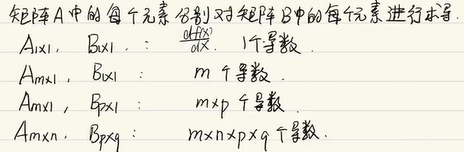 矩阵A中的每个元素分别对矩阵B中的每个元素进行求导.
A1x1, B1x1 : df(x)/dx. 1个导数.
Amx1, B1x1 : m个导数.
Amx1, Bpx1 : mxp个导数.
Amxn, Bpxq : mxnxpxq个导数.